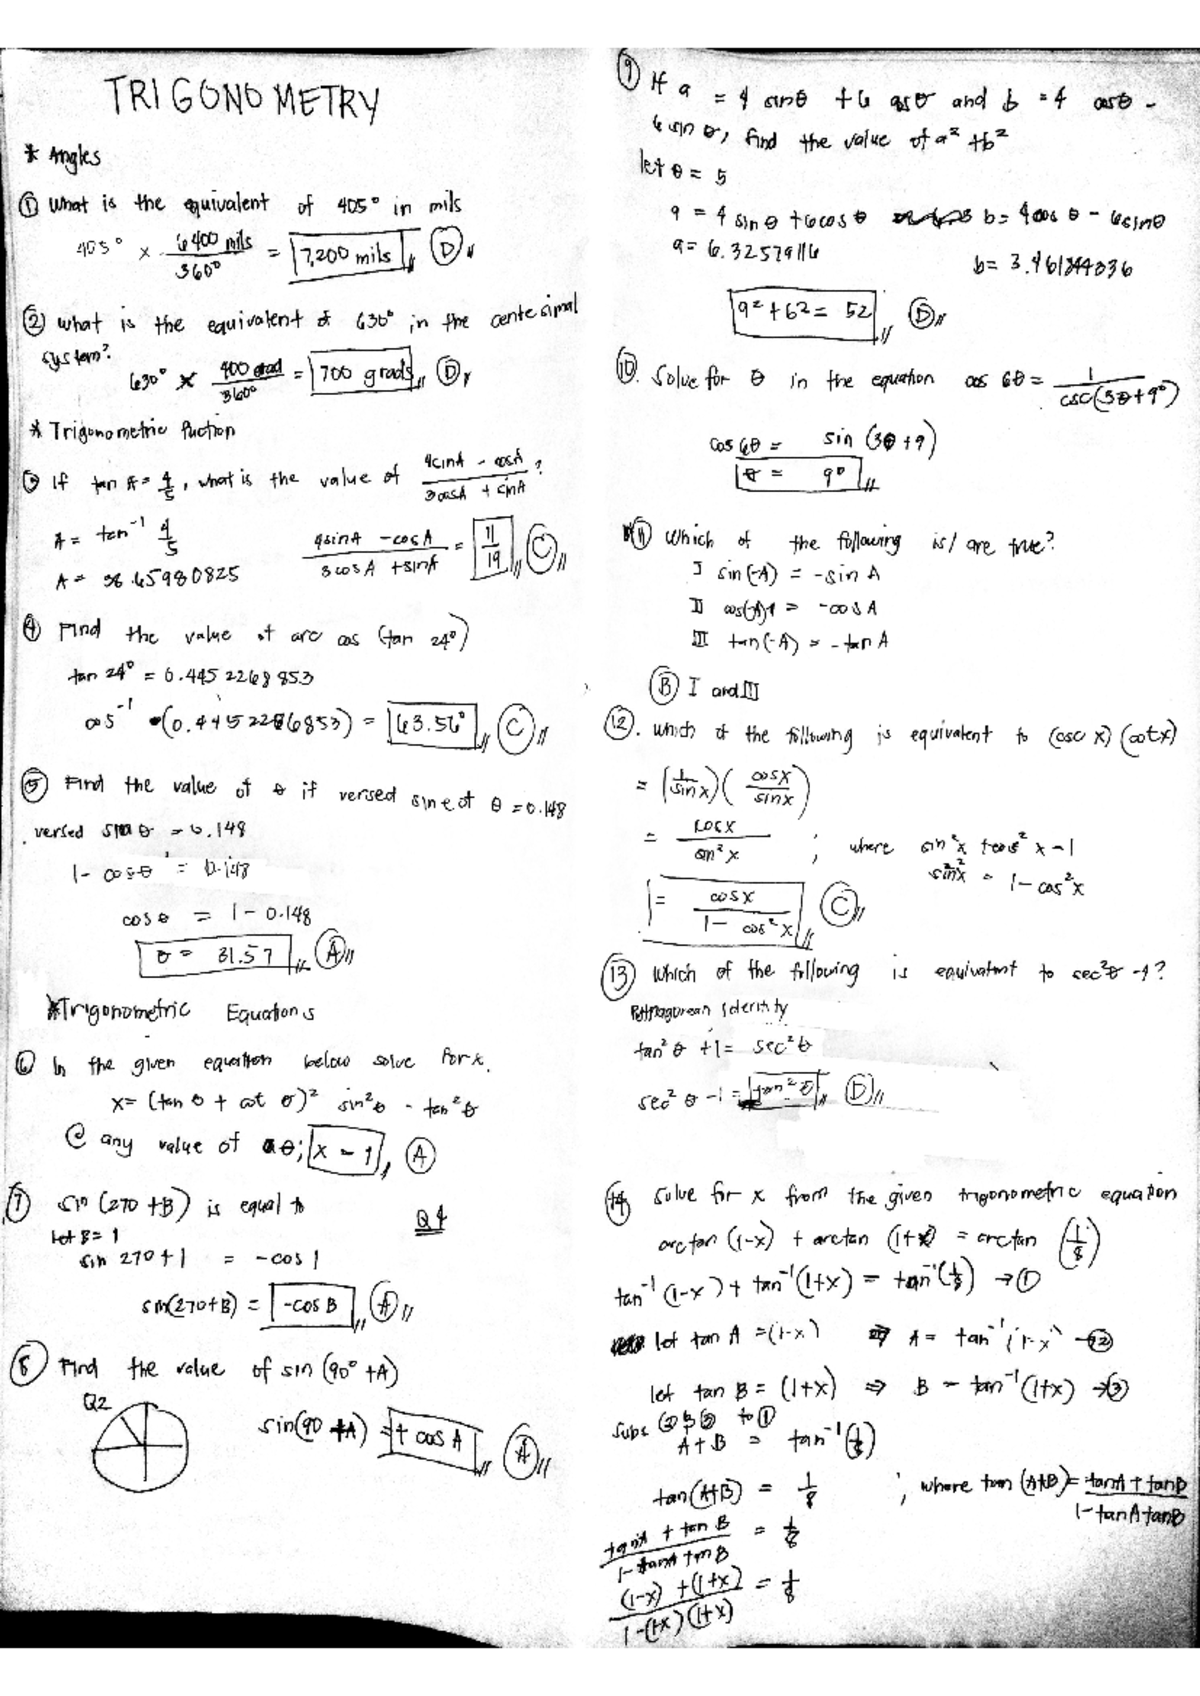 TRIGONOMETRY
* Angles
① What is the equivalent of 405° in mils
405° × 6400 mils / 360° = 7,200 mils (D)
② what is the equivalent of 630° in the centesimal
system?
630° × 400 grad / 360° = 700 grads (D)
* Trigonometric Fuction
③ If tan A = 4/5, what is the value of 4sinA - cosA / 3cosA + sinA ?
A = tan⁻¹ 4/5
4sinA - cosA / 3cosA + sinA = 11/19 (C)
A = 38.65980825
④ Find the value of arc cos (tan 24°)
tan 24° = 0.4452268853
cos⁻¹ (0.4452286853) = 63.56° (C)
⑤ Find the value of θ if versed sine of θ = 0.148
versed sin θ = 0.148
1 - cos θ = 0.148
cos θ = 1 - 0.148
θ = 31.57 (A)
*Trigonometric Equations
⑥ In the given equation below solve for x.
x = (tan θ + cot θ)² sin²θ - tan²θ
@ any value of θ; x = 1 (A)
⑦ sin (270 + B) is equal to
let B = 1
Q4
sin 270 + 1 = -cos 1
sin(270+B) = -cos B (A)
⑧ Find the value of sin (90° + A)
Q2
sin(90 + A) = + cos A (A)
⑨ If a = 4 sinθ + 6 cosθ and b = 4 cosθ -
6 sin θ, find the value of a² + b²
let θ = 5
a = 4 sin θ + 6cos θ b = 4cos θ - 6sinθ
a = 6.32579116
b = 3.461844036
a² + b² = 52 (D)
⑩. Solve for θ in the equation cos 6θ = 1 / csc(3θ + 9°)
cos 6θ = sin (3θ + 9)
θ = 9°
⑪ Which of the following is/are true?
I sin(-A) = -sin A
II cos(-A) = -cos A
III tan(-A) = -tan A
(B) I and III
⑫. which of the following is equivalent to (csc x) (cot x)
= (1/sin x) (cos x / sin x)
= cos x / sin² x ; where sin²x + cos² x = 1
sin²x = 1 - cos² x
= cos x / 1 - cos² x (C)
⑬ Which of the following is equivalent to sec²θ - 1?
Pythagorean Identity
tan² θ + 1 = sec² θ
sec² θ - 1 = tan² θ (D)
⑭ Solve for x from the given trigonometric equation
arctan (1-x) + arctan (1+x) = arctan (1/8)
tan⁻¹ (1-x) + tan⁻¹(1+x) = tan⁻¹(1/8) → ①
let tan A = (1-x) ⇒ A = tan⁻¹ (1-x) → ②
let tan B = (1+x) ⇒ B = tan⁻¹(1+x) → ③
subs ② & ③ to ①
A + B = tan⁻¹ (1/8)
tan(A+B) = 1/8 ; where tan (A+B) = tanA + tanB / 1 - tanA tanB
tanA + tan B / 1 - tanA tan B = 1/8
(1-x) + (1+x) / 1 - (1-x)(1+x) = 1/8